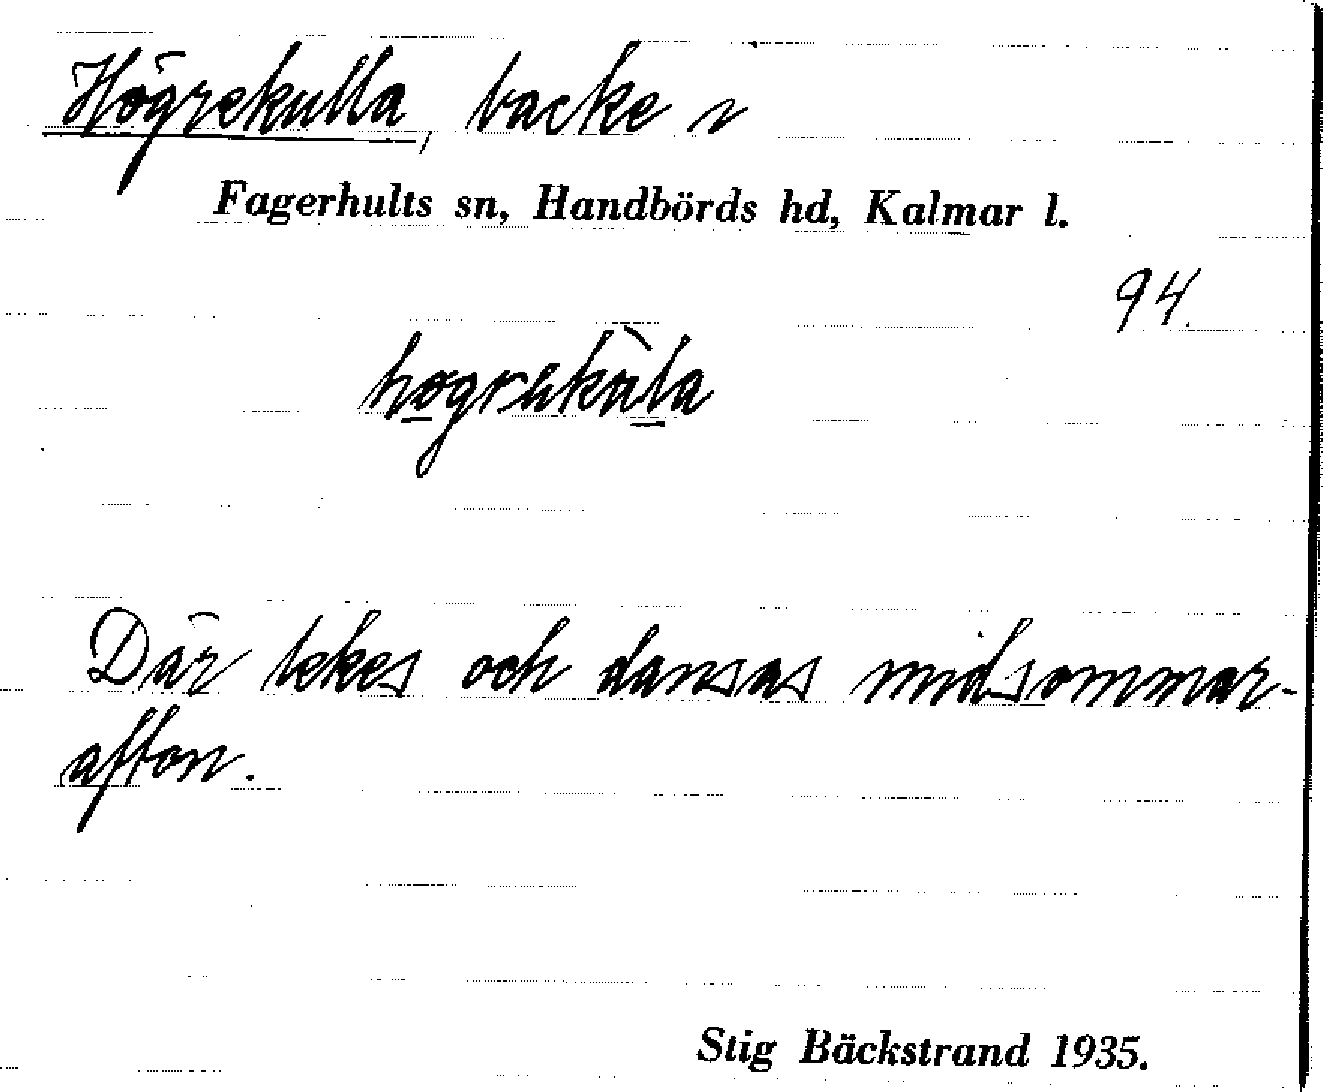 Högrekulla, backe
Fagerhults sn, Handbörds hd, Kalmar l.
94.
Där lekes och dansas midsommar-
afton.
Stig Bäckstrand 1935.